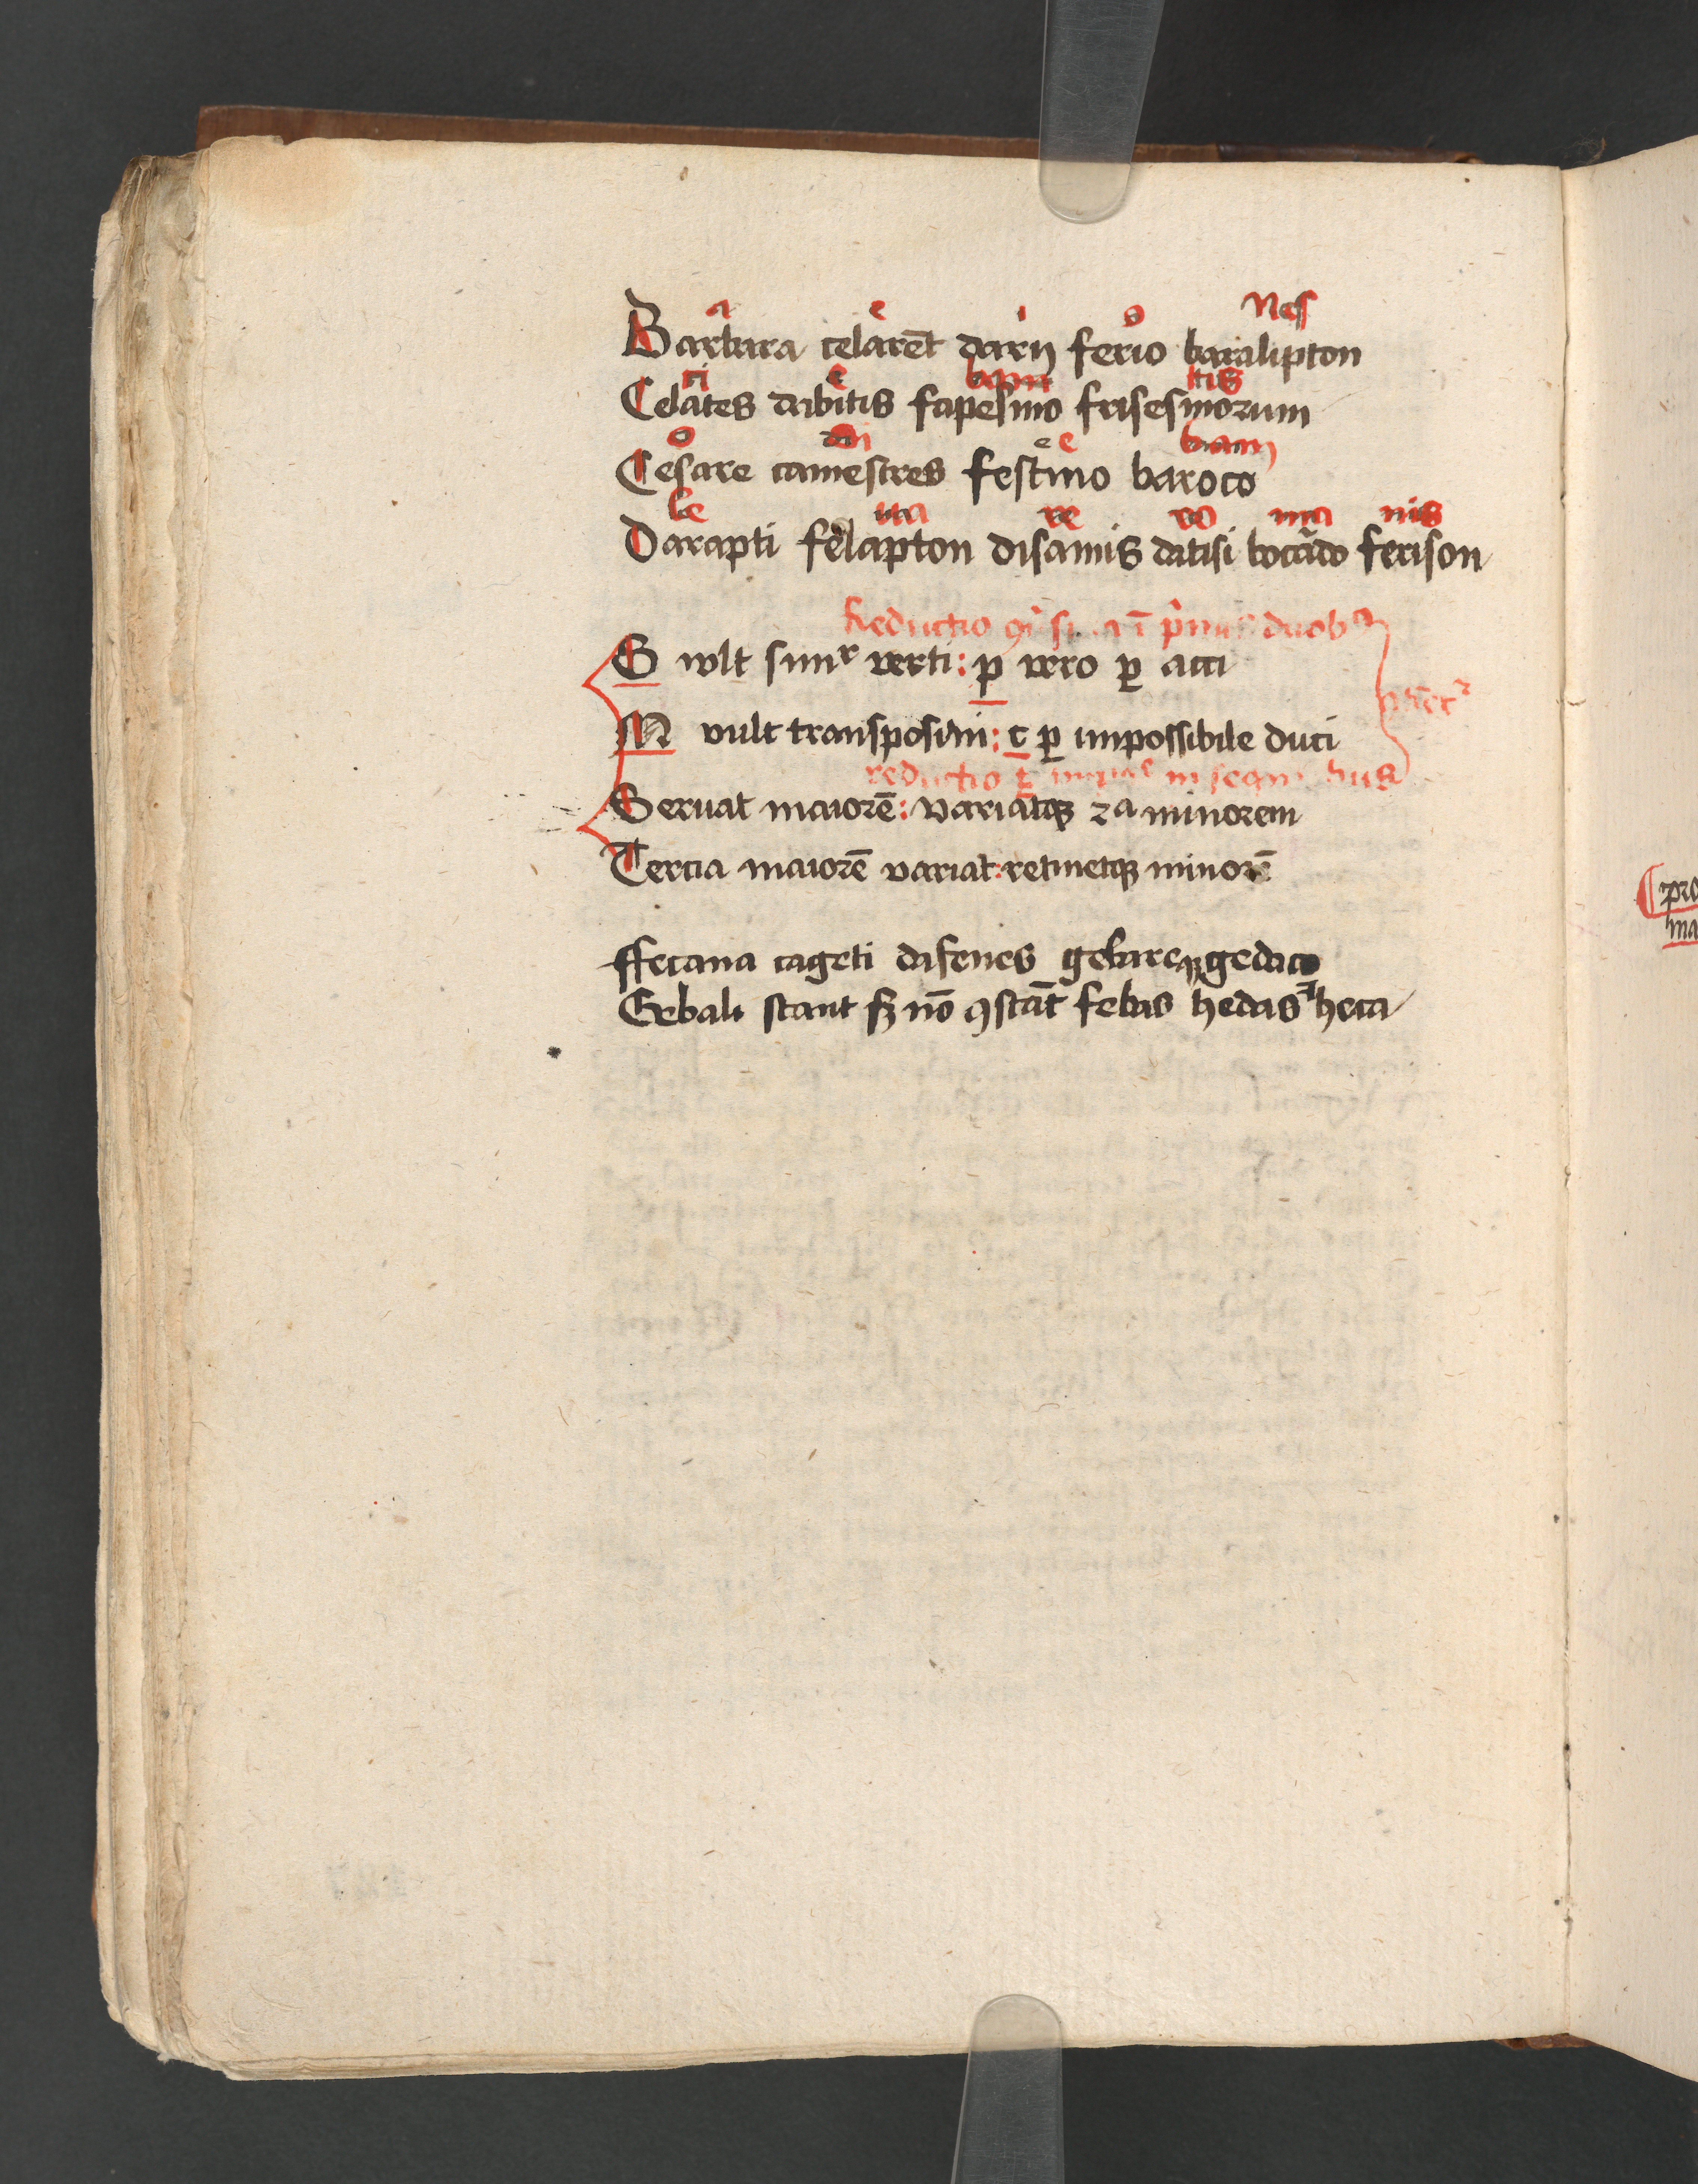 a e i o Nes
Barbara celarēt darij ferio baralipton
ci e bam tis
Celātes dabitis fapesmo frisesmorum
o dri e e bam
Cesare camestres festino baroco
le tta re vo ma nis
Darapti felapton disamis datisi bocardo ferison
Reductio duob9
S wlt simr verti: p vero ꝑ acci
M vult transponi: c ꝑ impossibile duci
reductio
Seruat maiorē: variatqꝫ 2a minorem
Tercia maiorē variat: retinetqꝫ minorē
ffecana cageti dafenes gebareqꝫ gedaco
Gebali stant sꝫ nō ꝯstāt febas hedas heca